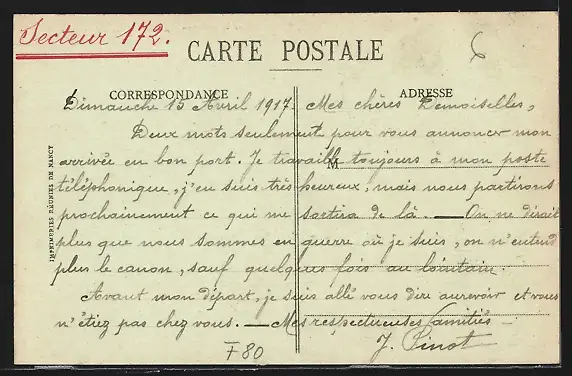 Secteur 172.
6
CARTE POSTALE
CORRESPONDANCE
ADRESSE
Dimanche 15 Avril 1917. Mes chères Demoiselles,
Deux mots seulement pour vous annoncer mon
arrivée en bon port. Je travaille toujours à mon poste
M
téléphonique, j'en suis très heureux, mais nous partirons
prochainement ce qui me sortira de là. — On ne dirait
plus que nous sommes en guerre où je suis, on n'entend
plus le canon, sauf quelques fois au lointain.
Avant mon départ, je suis allé vous dire aurevoir et vous
n'étiez pas chez vous. — Mes respectueuses amitiés —
J. Pinot
F80
IMPRIMERIES RÉUNIES DE NANCY